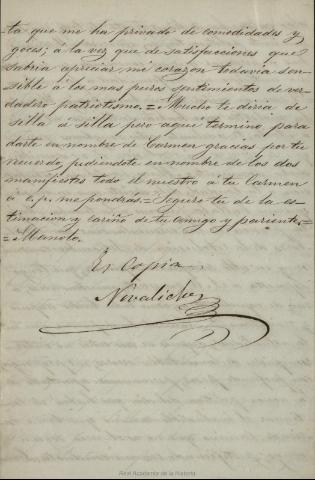 ta que me ha privado de comodidades y
goces; á la vez que de satisfacciones que
sabria apreciar mi corazon todavia sen-
sible á los mas puros sentimientos de ver-
dadero patriotismo.=Mucho te diria de
silla á silla pero aqui termino para
darte en nombre de Carmen gracias por tu
recuerdo, pidiendote en nombre de los dos
manifiestes todo el nuestro á tu Carmen
á c. p. me pondrás.=Seguro tu de la es-
timacion y cariño de tu Amigo y pariente.=
=Manolo.
Es Copia
Novaliches
Real Academia de la Historia